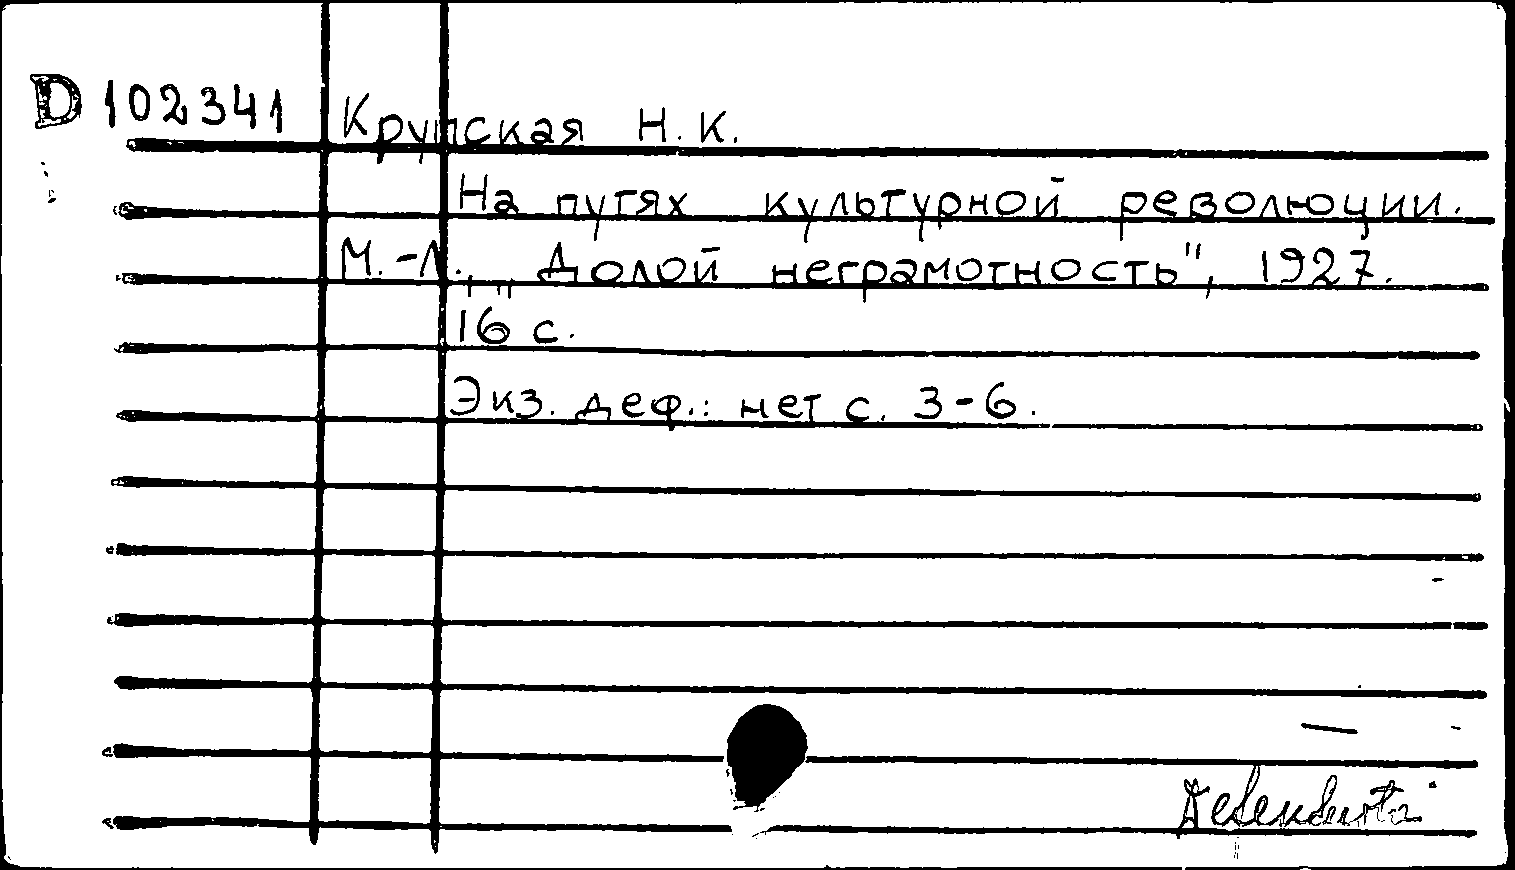 D 102341
Крупская Н. К.
На путях культурной революции.
М.-Л., „Долой неграмотность", 1927.
16 с.
Экз. деф.: нет с. 3-6.